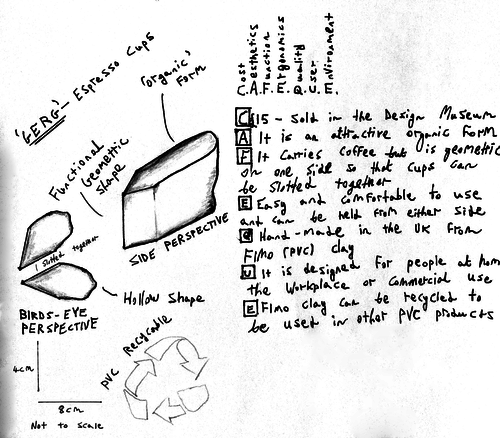 'GERG' - Espresso Cups
'organic' Form
Functional Geometric Shape
SIDE PERSPECTIVE
slotted together
Hollow Shape
BIRDS-EYE
PERSPECTIVE
4cm
8cm
Not to scale
PVC Recycable
Cost
Aesthetics
Function
Ergonomics
Quality
User
Environment
C.A.F.E.Q.U.E.
C £15 - Sold in the Design Museum
A It is an attractive organic form
F It Carries Coffee but is geometric
on one side so that cups can
be slotted together
E Easy and comfortable to use
and can be held from either side
Q Hand-made in the UK from
Fimo (PVC) clay
U It is designed for people at home
the workplace or commercial use
E Fimo clay can be recycled to
be used in other PVC products